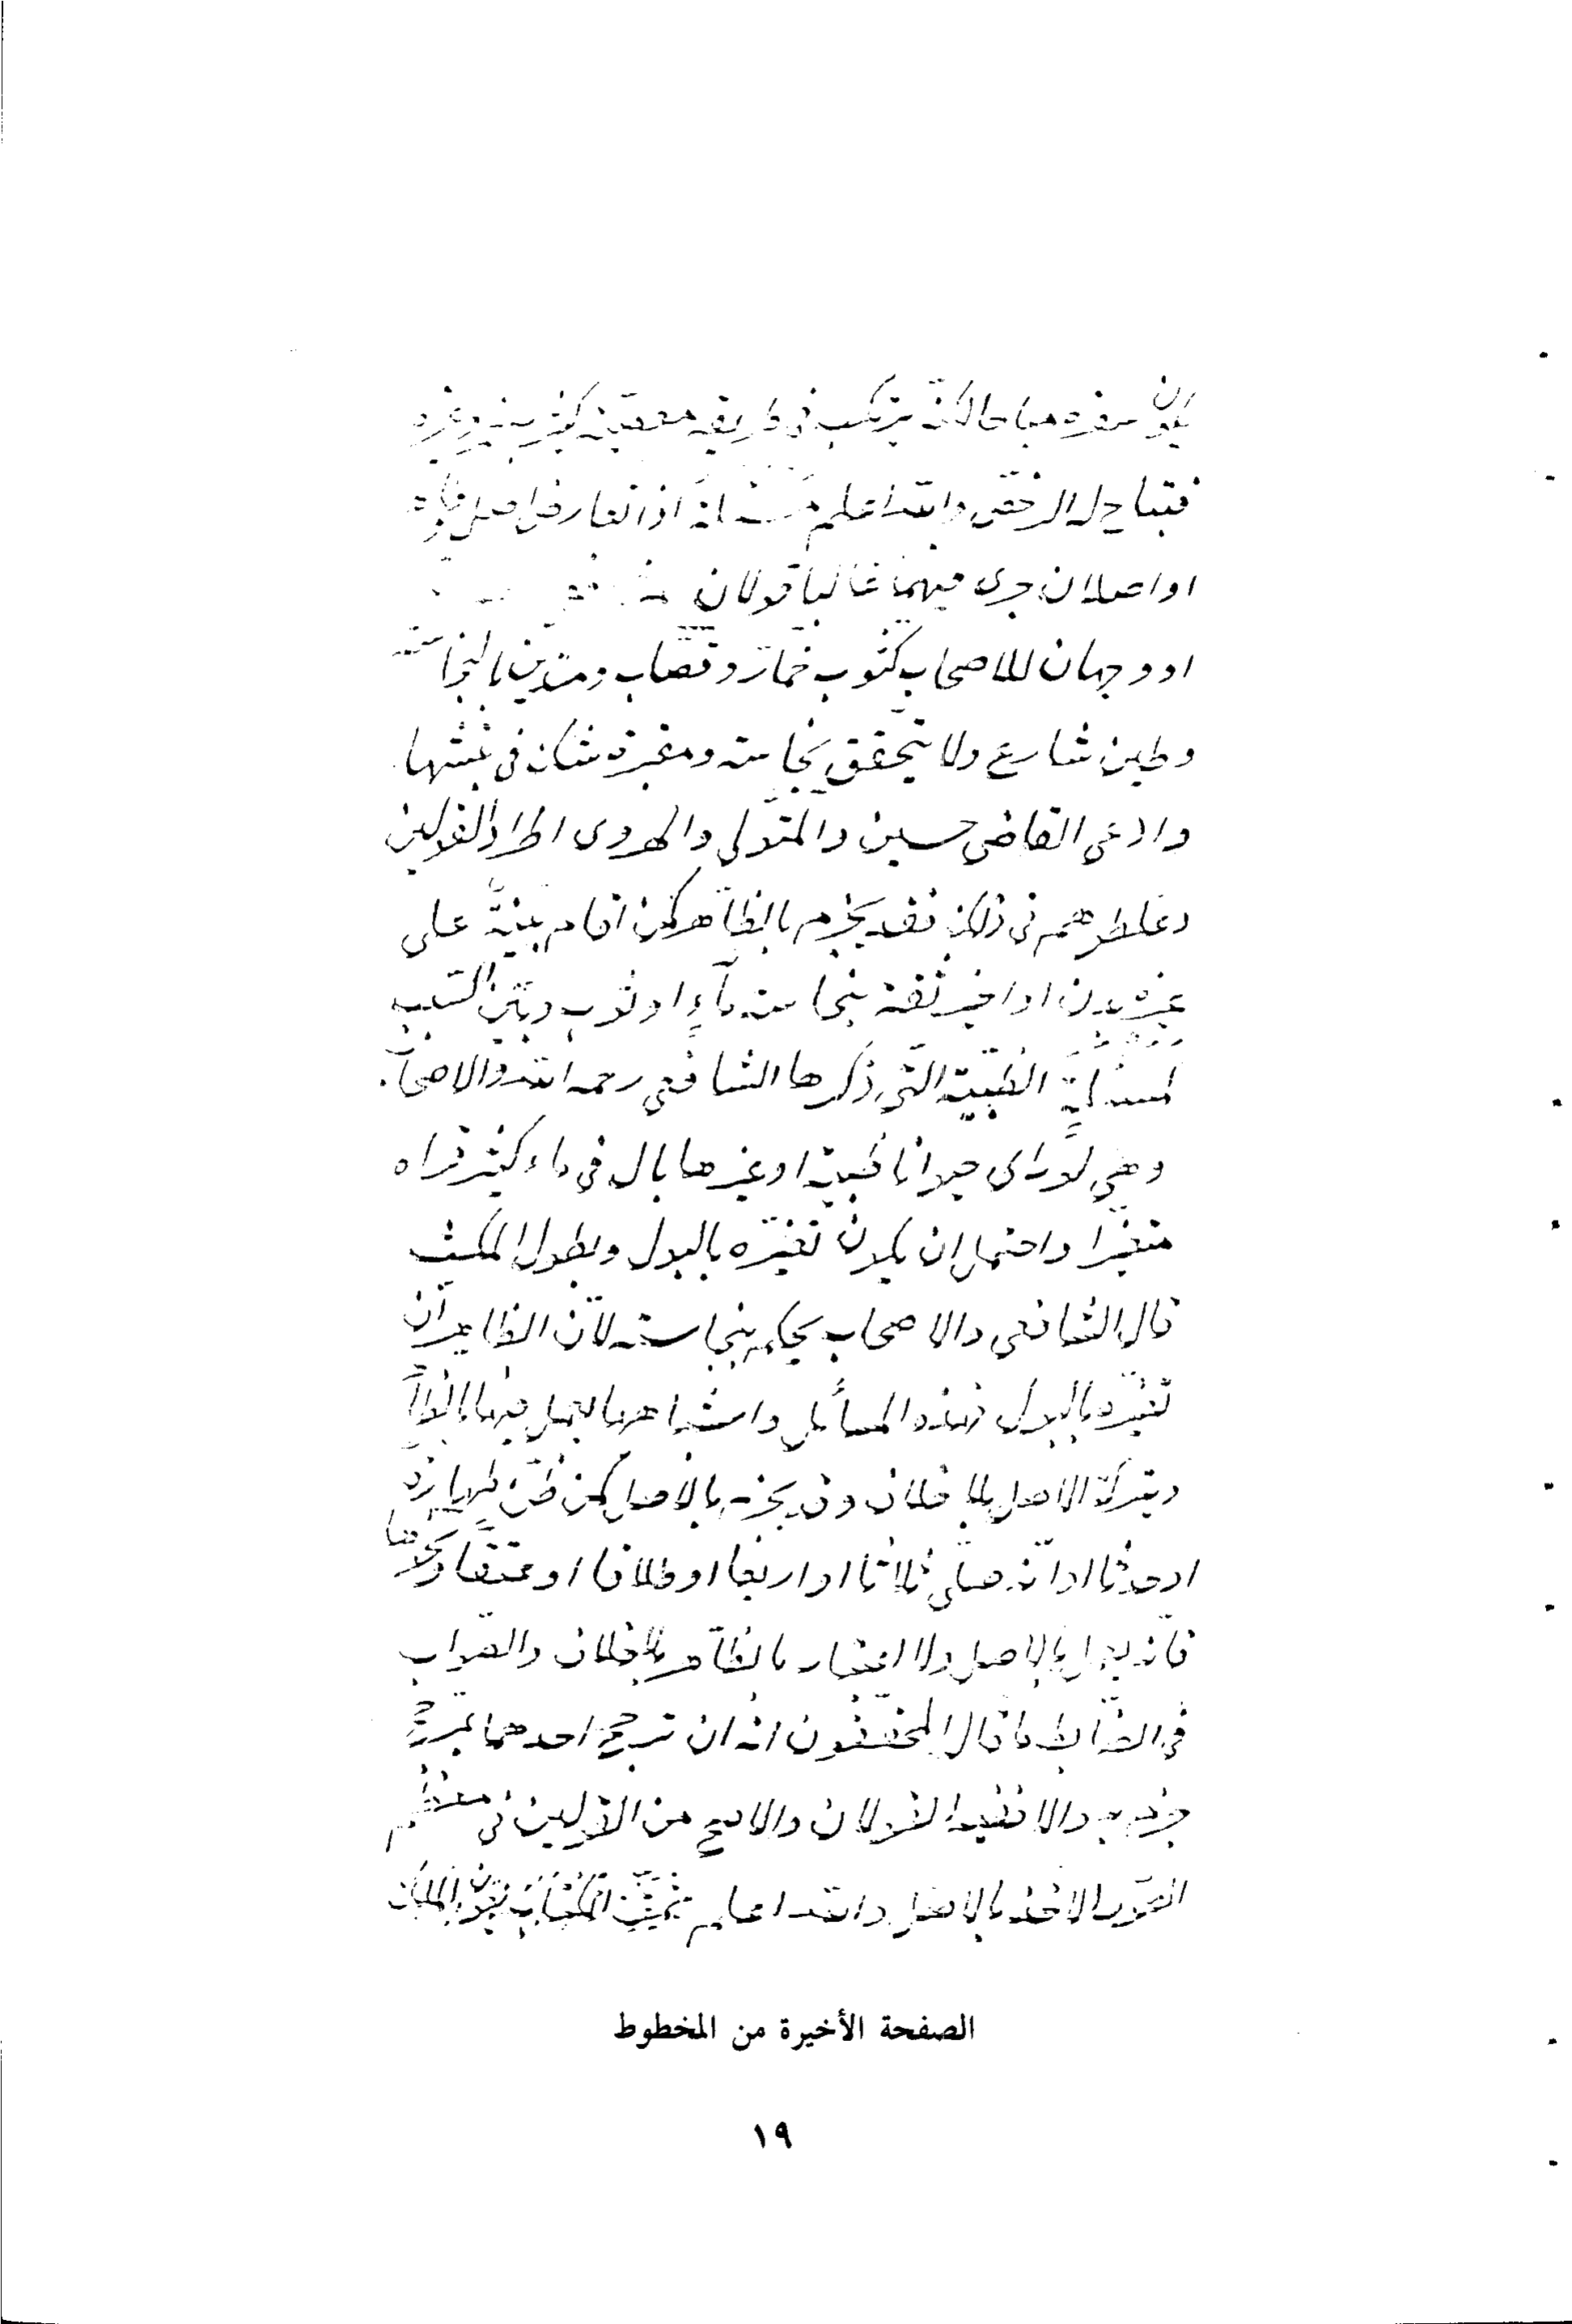 يكون سفره مباحا لكنه يرتكب في طريقه معصية كشرب خمر وغيره
فتباح له الرخص والله اعلم مسئلة اذا تعارض اصل وظاهر
او اصلان جرى فيهما غالبا قولان
او وجهان للاصحاب كثوب خمار وقصاب ومتدين بالنجاسة
وطين شارع ولا يتحقق نجاسته ومقبرة شك في نبشها
وادعى القاضي حسين والمتولي والهروي اطراد القولين
وغلطوهم في ذلك فقد يجزم بالظاهر كمن اقام بينة على
غيره بدين او اخبر ثقة بنجاسة ماء او ثوب وبين السبب
لمسئلة الظبية التي ذكرها الشافعي رحمه الله والاصحاب
وهي لو راى حيوانا ظبية او غيرها بال في ماء كثير فراه
متغيرا واحتمل ان يكون تغيره بالبول وبطول المكث
قال الشافعي والاصحاب يحكم بنجاسته لان الظاهر ان
تغيره بالبول فهذه المسائل واشباهها يعمل فيها بالظاهر
ويترك الاصل بلا خلاف وقد يجزم بالاصل كمن ظن طهارة
او حدثا او انه صلى ثلاثا او اربعا او طلاقا او عتقا ونحوها
فانه يعمل بالاصل ولا اعتبار بالظاهر بلا خلاف والصواب
في الضابط ما قال المحققون انه ان ترجح احدهما بمرجح
جزم به والا ففيه القولان والاصح من القولين في معظم
الصور الاخذ بالاصل والله اعلم تمت الكتاب بعون الملك
الصفحة الأخيرة من المخطوط
١٩